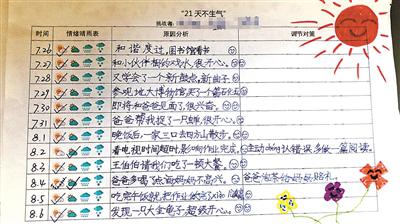 "21天不生气"
挑战者:
时间 情绪晴雨表 原因分析 调对策
7.26 和谐度过,图书馆看书
7.27 和小伙伴相约戏水,很开心。
7.28 又学会了一个新鼓点,新曲子
7.29 参观地大博物馆买了个
7.30 即将和爸爸见面了很兴奋。
7.31 爸爸帮我捉了一只蝉,很开心
8.1 晚饭后,一家三口去南山散步。
8.2 看电视时间超时,影响作业完成 主动dǎng认错误,多做一篇阅读。
8.3 王伯伯请我们吃了一顿大餐。
8.4 爸爸多喝了点酒妈妈不高兴。 爸爸泡茶给妈妈赔礼。
8.5 吃完午饭就把作业
8.6 发现一只大金龟子,超级开心。